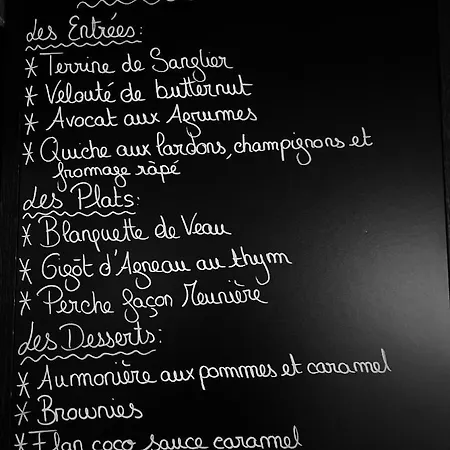 Les Entrées:
* Terrine de Sanglier
* Velouté de butternut
* Avocat aux Agrumes
* Quiche aux lardons, champignons et
fromage râpé
Les Plats:
* Blanquette de Veau
* Gigôt d'Agneau au thym
* Perche façon Meunière
Les Desserts:
* Aumonière aux pommes et caramel
* Brownies
* Flan coco sauce caramel